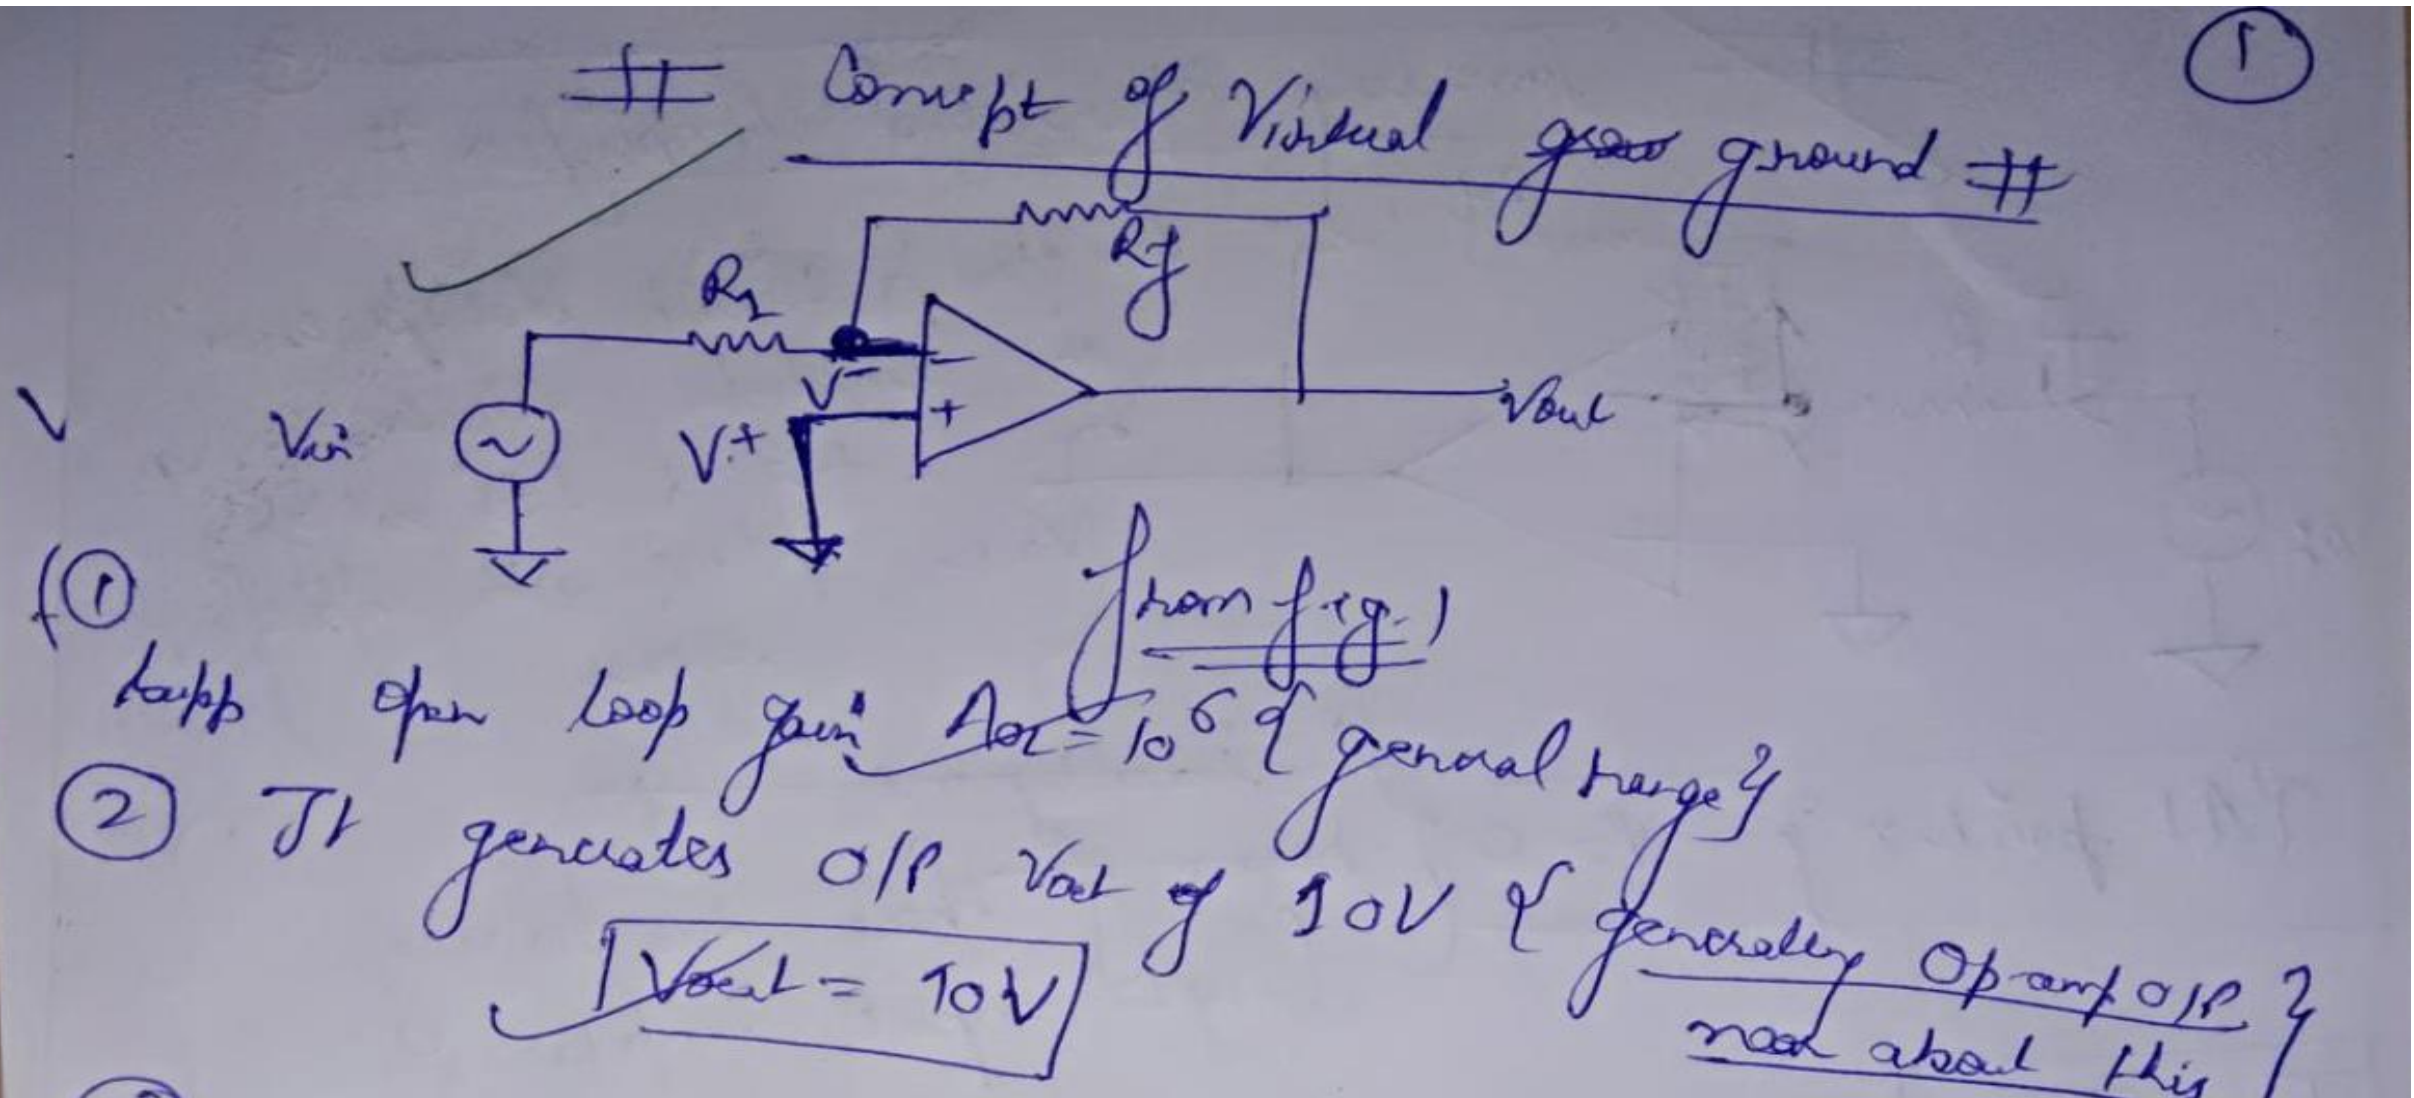 ①
# Concept of Virtual ground #
Rf
R1
V-
-
+
V+
Vin
~
Vout
①
from fig. 1
Supp open loop gain AOL = 10^6 { general range }
② It generates O/P Vout of 10V { generally Op-amp O/P
near about this }
Vout = 10V